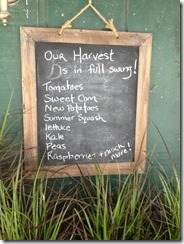 Our Harvest
is in full swing!
Tomatoes
Sweet Corn
New Potatoes
Summer Squash
lettuce
Kale
Peas
Raspberries + much more!